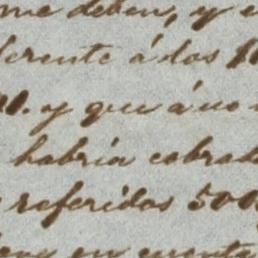 me deben, y e
ferente á dos
y que á no
habria cobrad
referidos 500
en cuenta